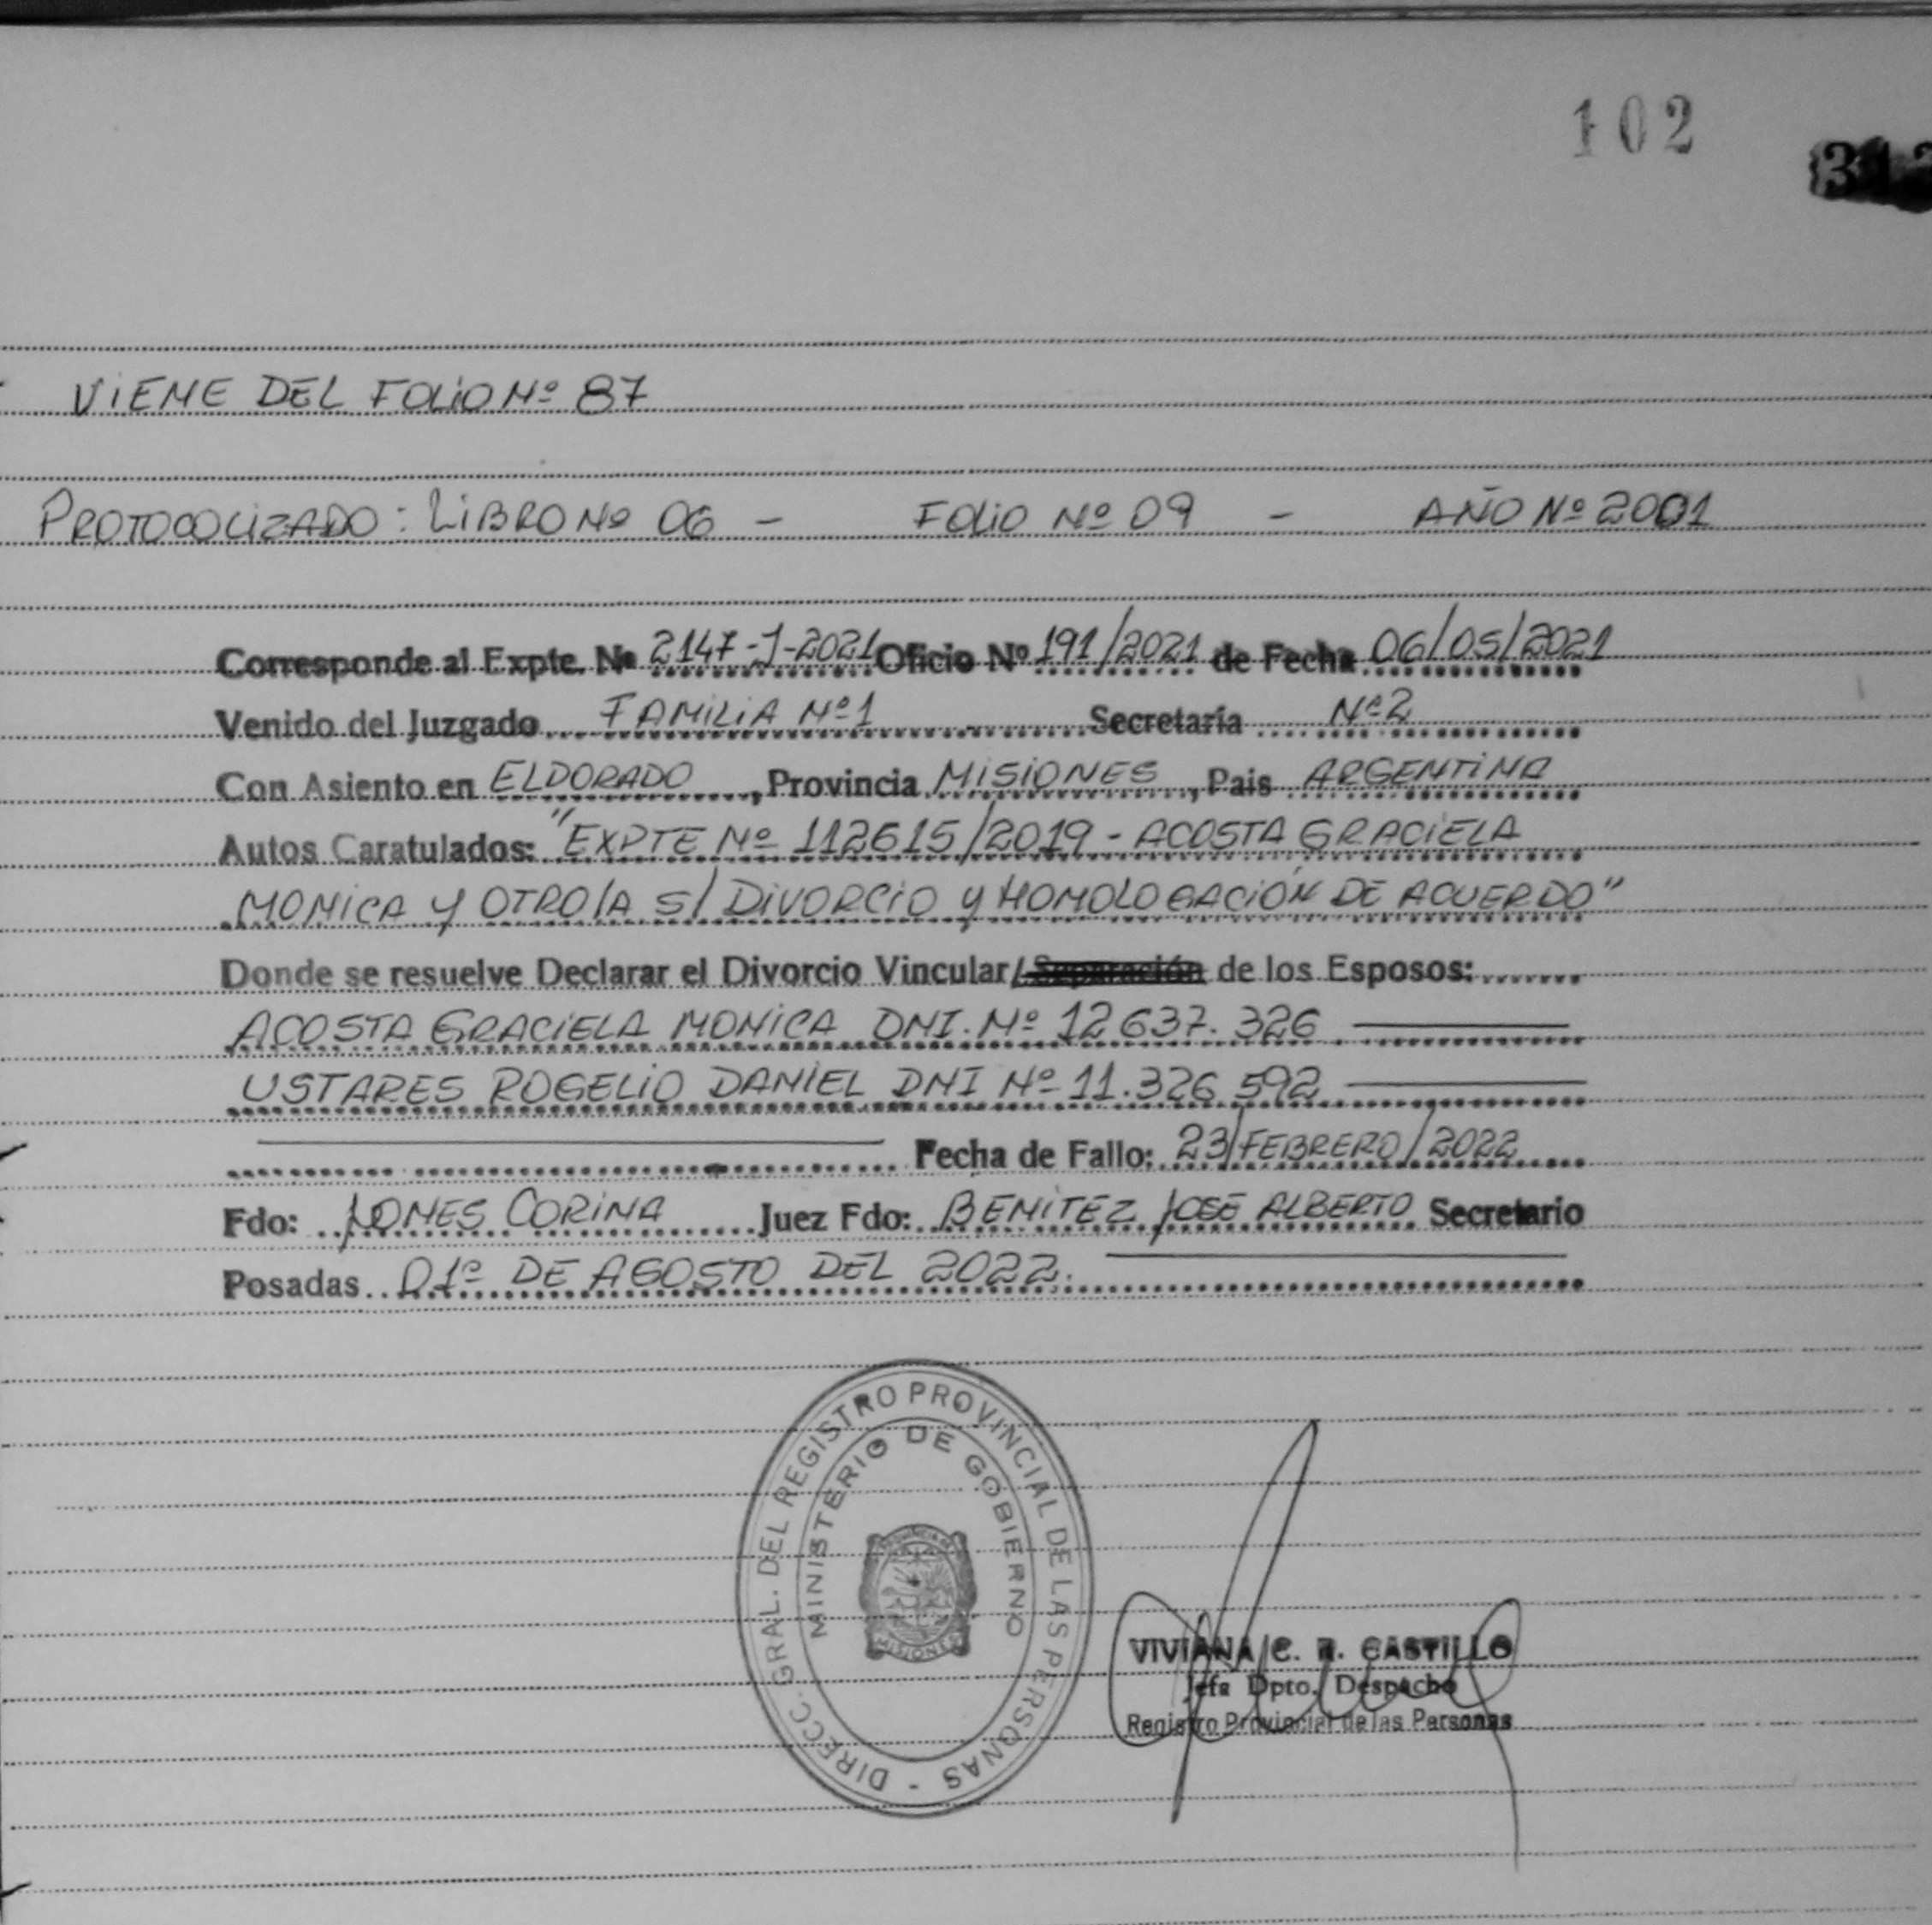 102
VIENE DEL FOLIO Nº 87
PROTOCOLIZADO: LIBRO Nº 06 - FOLIO Nº 09 - AÑO Nº 2001
Corresponde al Expte. Nº 2147-J-2021 Oficio Nº 191/2021 de Fecha 06/05/2021
Venido del Juzgado FAMILIA Nº1 Secretaría Nº2
Con Asiento en ELDORADO, Provincia MISIONES, Pais ARGENTINA
Autos Caratulados: "EXPTE Nº 112615/2019 - ACOSTA GRACIELA
MONICA Y OTRO/A S/ DIVORCIO Y HOMOLOGACIÓN DE ACUERDO"
Donde se resuelve Declarar el Divorcio Vincular/Separación de los Esposos:
ACOSTA GRACIELA MONICA DNI. Nº 12637.326
USTARES ROGELIO DANIEL DNI Nº 11.326.592
Fecha de Fallo: 23/FEBRERO/2022
Fdo: JONES CORINA Juez Fdo: BENITEZ JOSE ALBERTO Secretario
Posadas 01º DE AGOSTO DEL 2022.
DIRECC. GRAL. DEL REGISTRO PROVINCIAL DE LAS PERSONAS -
MINISTERIO DE GOBIERNO
MISIONES
VIVIANA C. R. CASTILLO
Jefa Dpto. Despacho
Registro Provincial de las Personas